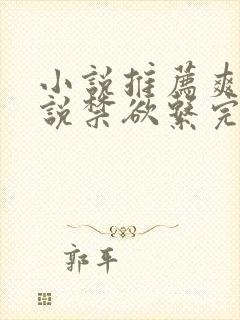 小說推薦爽
說禁欲繫完
郭平